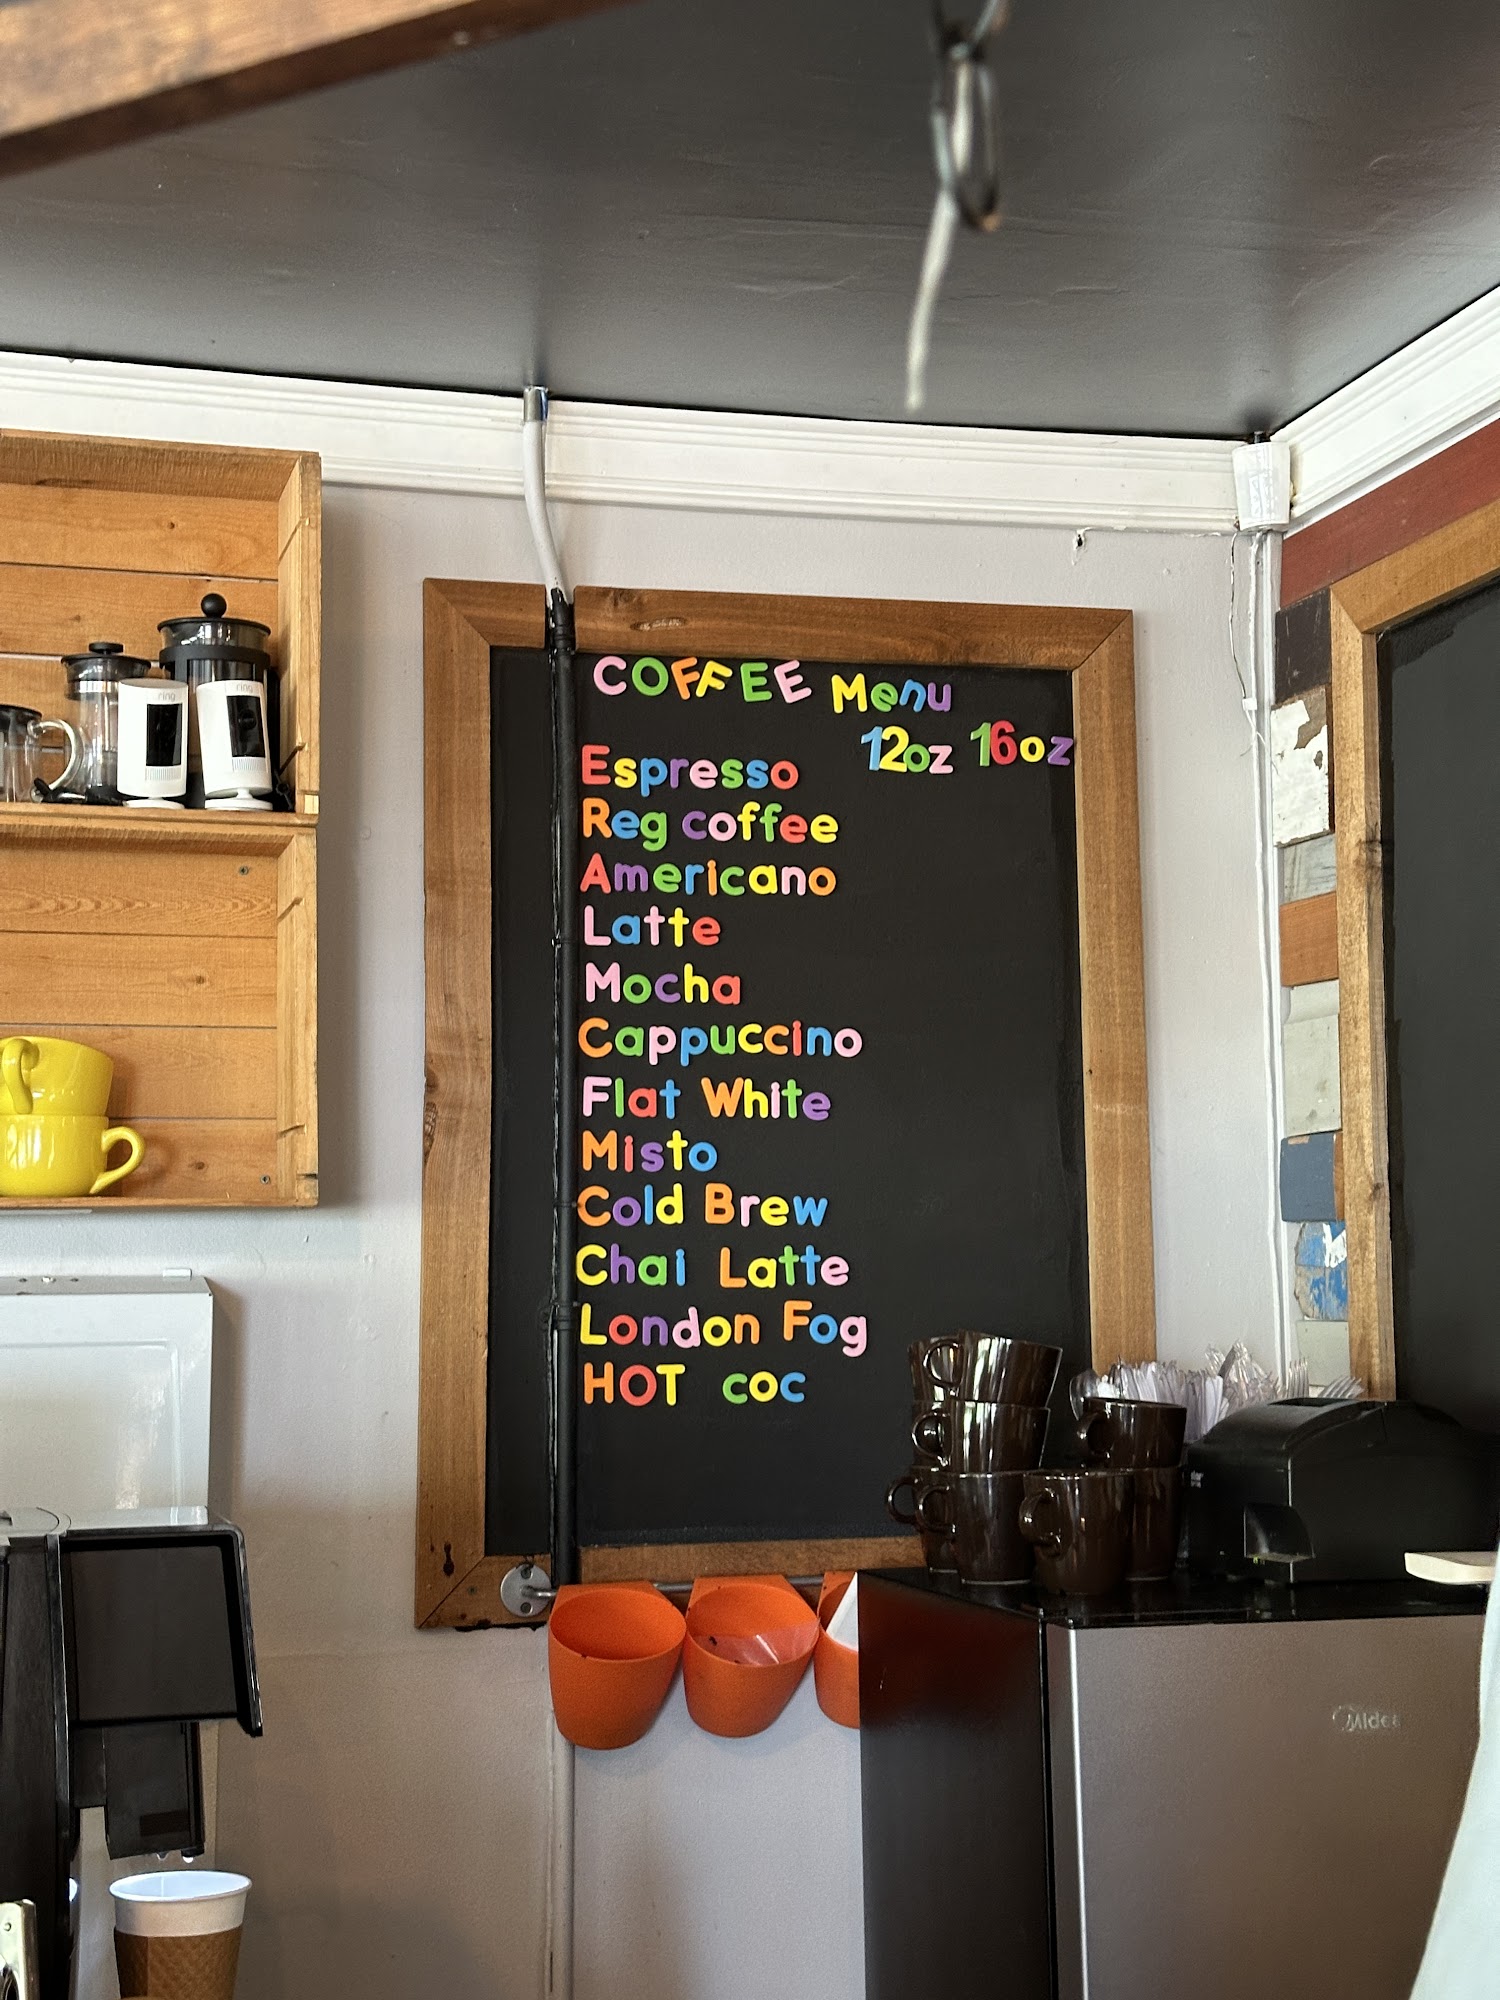 COFFEE Menu
12oz 16oz
Espresso
Reg coffee
Americano
Latte
Mocha
Cappuccino
Flat White
Misto
Cold Brew
Chai Latte
London Fog
HOT coc
ring
ring
Midea